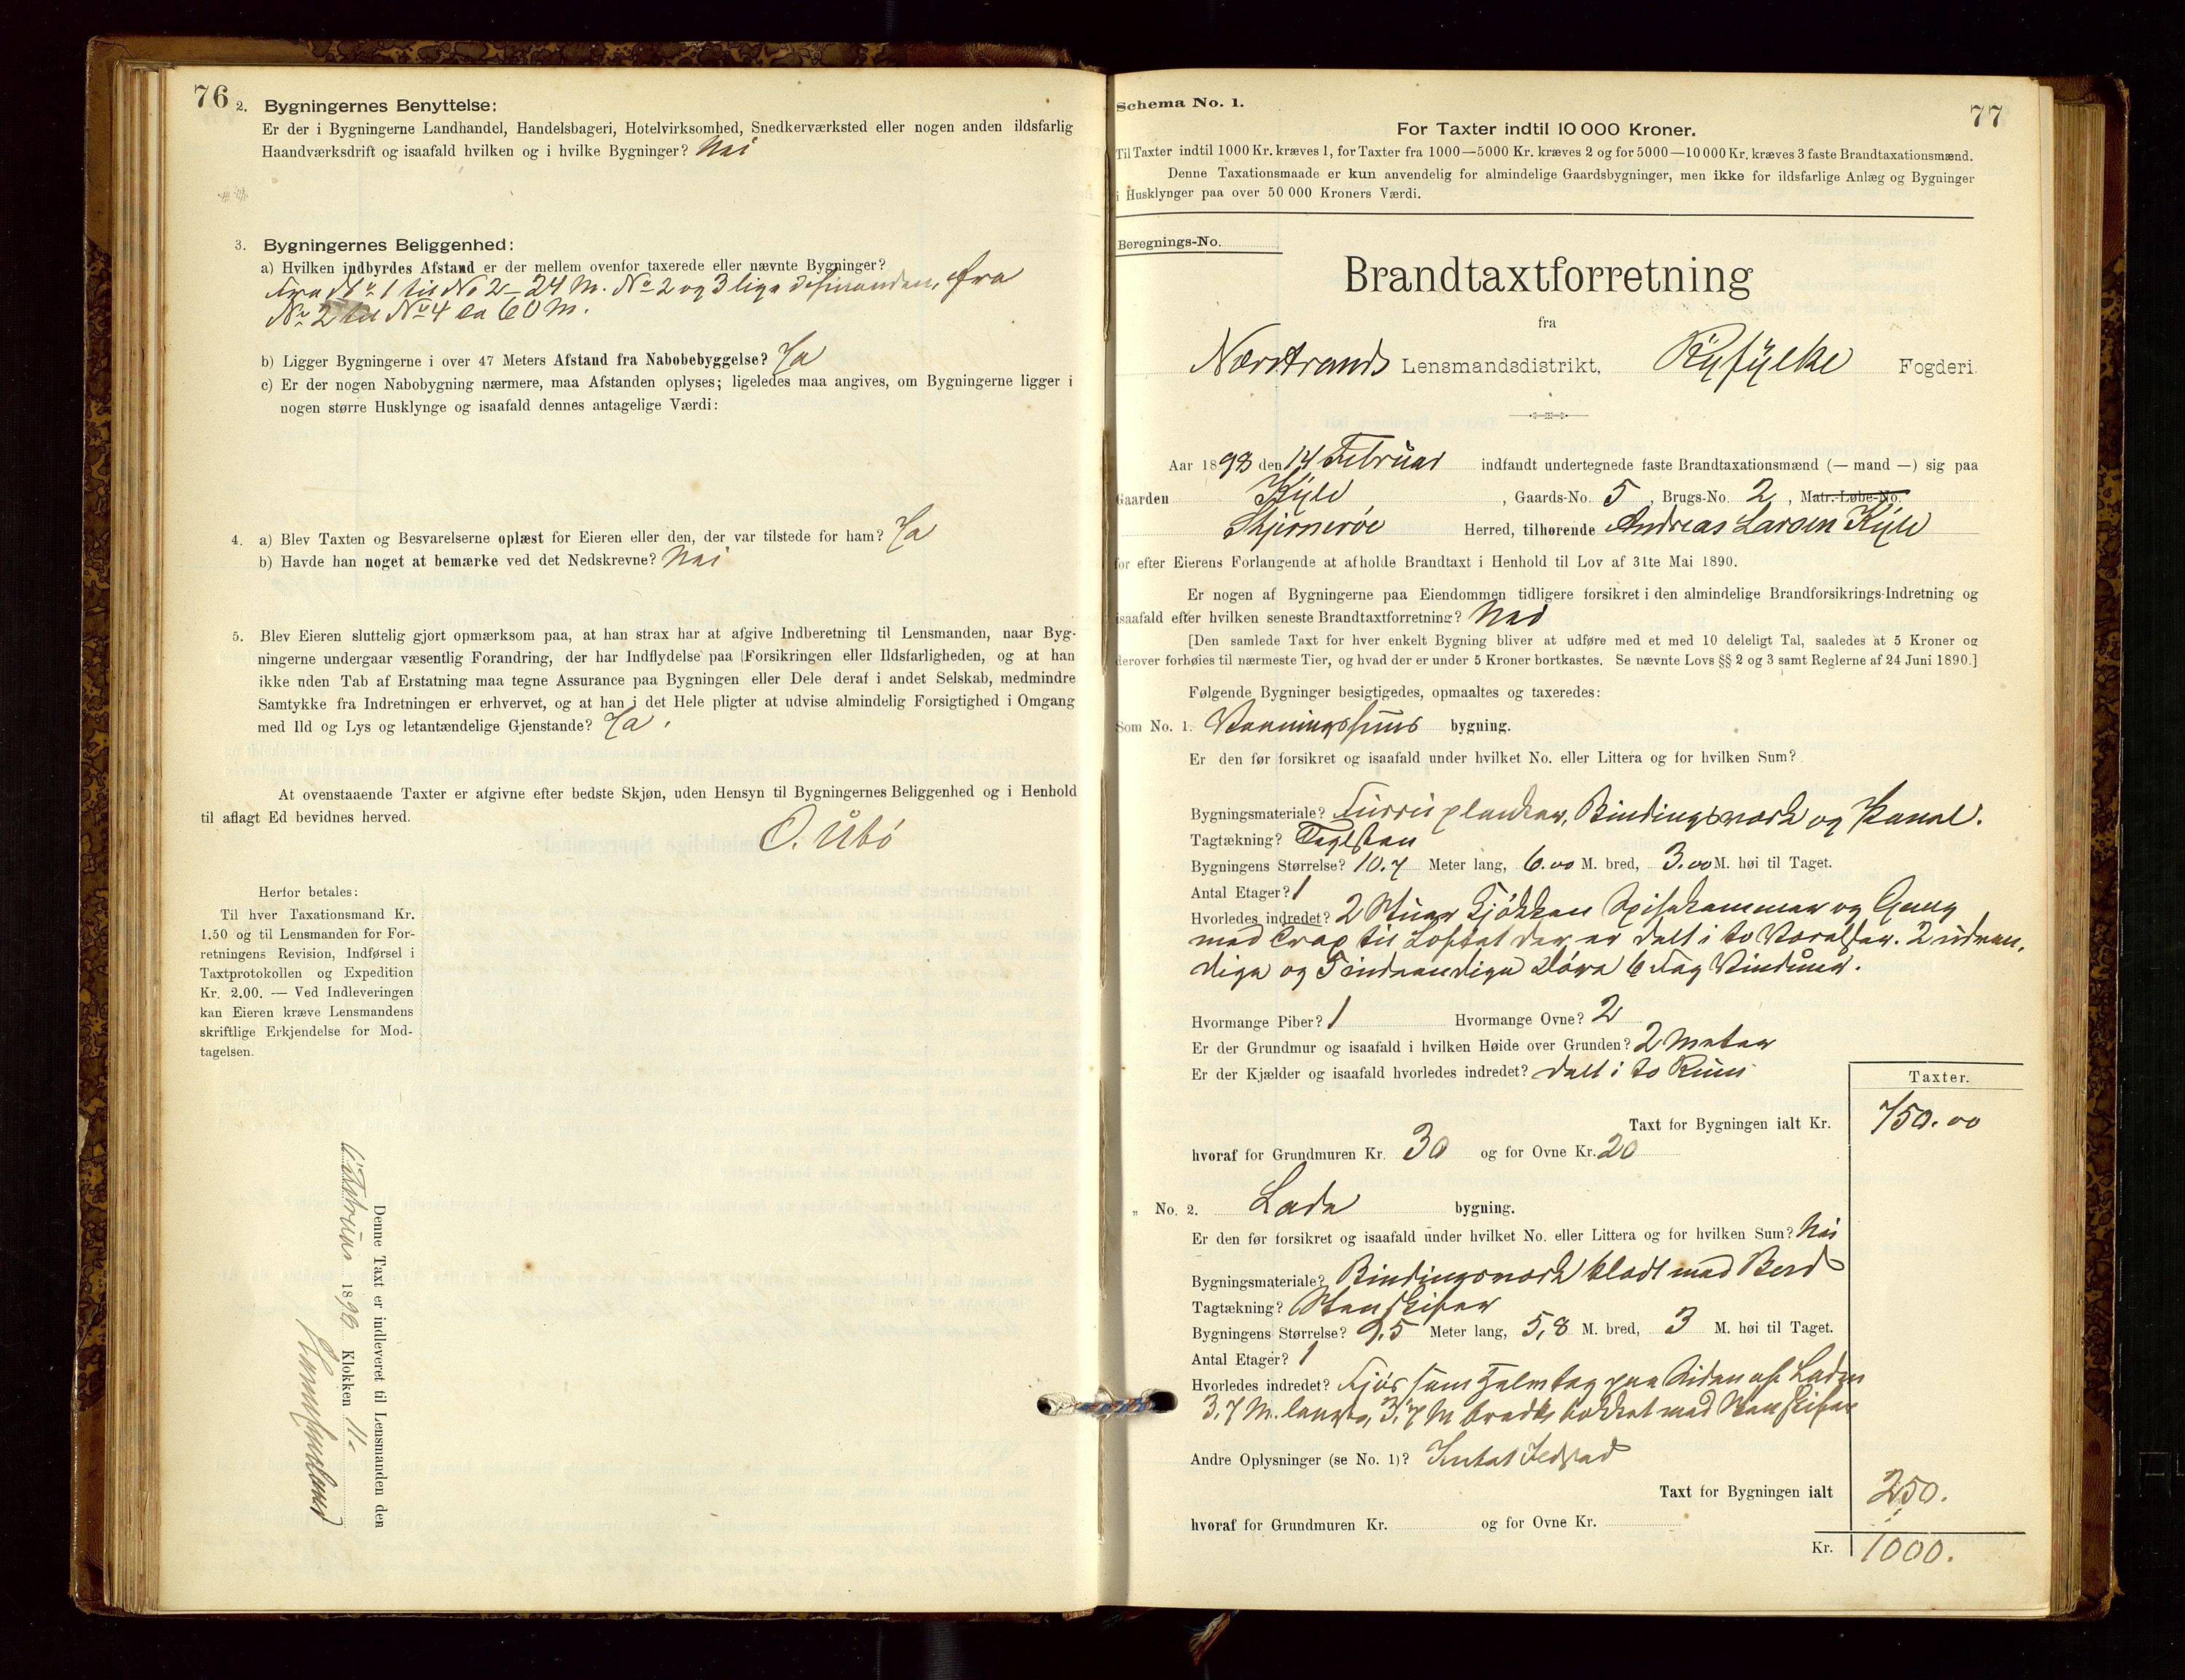 76
2. Bygningernes Benyttelse:
Er der i Bygningerne Landhandel, Handelsbageri, Hotelvirksomhed, Snedkerværksted eller nogen anden ildsfarlig
Haandværksdrift og isaafald hvilken og i hvilke Bygninger? Nei
3. Bygningernes Beliggenhed:
a) Hvilken indbyrdes Afstand er der mellem ovenfor taxerede eller nævnte Bygninger?
Fra No 1 til No 2 – 24 M. No 2 og 3 lige Fra
No 2 til No 4 ca 60 M.
b) Ligger Bygningerne i over 47 Meters Afstand fra Nabobebyggelse? Ja
c) Er der nogen Nabobygning nærmere, maa Afstanden oplyses; ligeledes maa angives, om Bygningerne ligger i
nogen større Husklynge og isaafald dennes antagelige Værdi:
4. a) Blev Taxten og Besvarelserne oplæst for Eieren eller den, der var tilstede for ham? Ja
b) Havde han noget at bemærke ved det Nedskrevne? Nei
5. Blev Eieren sluttelig gjort opmærksom paa, at han strax har at afgive Indberetning til Lensmanden, naar Byg-
ningerne undergaar væsentlig Forandring, der har Indflydelse paa Forsikringen eller Ildsfarligheden, og at han
ikke uden Tab af Erstatning maa tegne Assurance paa Bygningen eller Dele deraf i andet Selskab, medmindre
Samtykke fra Indretningen er erhvervet, og at han i det Hele pligter at udvise almindelig Forsigtighed i Omgang
med Ild og Lys og letantændelige Gjenstande? Ja.
At ovenstaaende Taxter er afgivne efter bedste Skjøn, uden Hensyn til Bygningernes Beliggenhed og i Henhold
til aflagt Ed bevidnes herved.
O. Ubö
Herfor betales:
Til hver Taxationsmand Kr.
1.50 og til Lensmanden for For-
retningens Revision, Indførsel i
Taxtprotokollen og Expedition
Kr. 2.00. — Ved Indleveringen
kan Eieren kræve Lensmandens
skriftlige Erkjendelse for Mod-
tagelsen.
Denne Taxt er indleveret til Lensmanden den
Februar 1898 Klokken 11
77
Schema No. 1.
For Taxter indtil 10 000 Kroner.
Til Taxter indtil 1000 Kr. kræves 1, for Taxter fra 1000—5000 Kr. kræves 2 og for 5000—10 000 Kr. kræves 3 faste Brandtaxationsmænd.
Denne Taxationsmaade er kun anvendelig for almindelige Gaardsbygninger, men ikke for ildsfarlige Anlæg og Bygninger
i Husklynger paa over 50 000 Kroners Værdi.
Beregnings-No.
Brandtaxtforretning
fra
Nærstrands Lensmandsdistrikt, Ryfylke Fogderi
Aar 1898 den 14 Februar indfandt undertegnede faste Brandtaxationsmænd (— mand —) sig paa
Gaarden Kyle, Gaards-No. 5, Brugs-No. 2, Matr.-Løbe-No.
Stjernerøe Herred, tilhørende Andreas Larsen Kyle
for efter Eierens Forlangende at afholde Brandtaxt i Henhold til Lov af 31te Mai 1890.
Er nogen af Bygningerne paa Eiendommen tidligere forsikret i den almindelige Brandforsikrings-Indretning og
isaafald efter hvilken seneste Brandtaxtforretning? Nei
[Den samlede Taxt for hver enkelt Bygning bliver at udføre med et med 10 deleligt Tal, saaledes at 5 Kroner og
derover forhøies til nærmeste Tier, og hvad der er under 5 Kroner bortkastes. Se nævnte Lovs §§ 2 og 3 samt Reglerne af 24 Juni 1890.]
Følgende Bygninger besigtigedes, opmaaltes og taxeredes:
Som No. 1. Vaaningshuus bygning.
Er den før forsikret og isaafald under hvilket No. eller Littera og for hvilken Sum?
Bygningsmateriale? Furru planker, Bindingsverk og Panel.
Tagtækning? Teglsten
Bygningens Størrelse? 10.7 Meter lang, 6.00 M. bred, 3.00 M. høi til Taget.
Antal Etager? 1
Hvorledes indredet? 2 Stuer Kjökken Spisekammer og Gang
med Trap til Loftet der er delt i to Værelser. 2 udven,
dige og 5 indvendige Döre 6 Fag Vinduer.
Hvormange Piber? 1 Hvormange Ovne? 2
Er der Grundmur og isaafald i hvilken Høide over Grunden? 2 Meter
Er der Kjælder og isaafald hvorledes indredet? delt i to Rum
Taxter.
Taxt for Bygningen ialt Kr. 750.00
hvoraf for Grundmuren Kr. 30 og for Ovne Kr. 20
„ No. 2. Lade bygning.
Er den før forsikret og isaafald under hvilket No. eller Littera og for hvilken Sum? Nei
Bygningsmateriale? Bindingsverk klædt med Bord
Tagtækning? Stenskifer
Bygningens Størrelse? 9,5 Meter lang, 5,8 M. bred, 3 M. høi til Taget.
Antal Etager? 1
Hvorledes indredet? Fjös som paa Siden af Laden
3,7 M. langt, 3,7 M bredt, tækket med Stenskifer
Andre Oplysninger (se No. 1)? Intet Ildsted
Taxt for Bygningen ialt 250.
hvoraf for Grundmuren Kr. og for Ovne Kr.
Kr. 1000.